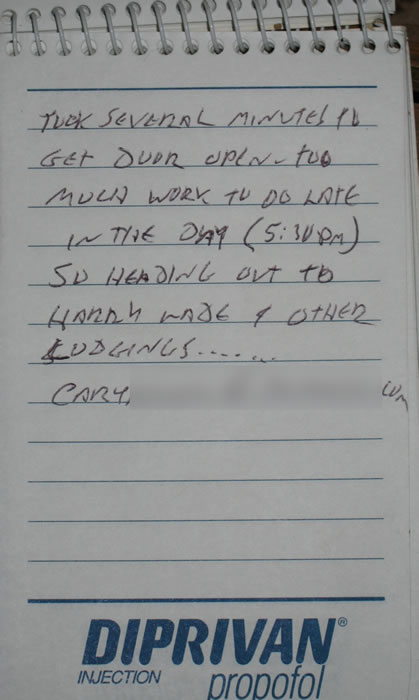 TOOK SEVERAL MINUTES TO
GET DOOR OPEN - TOO
MUCH WORK TO DO LATE
IN THE DAY (5:30 PM)
SO HEADING OUT TO
HARRY WADE & OTHER
LODGINGS.......
CARY.
COM
DIPRIVAN®
INJECTION propofol